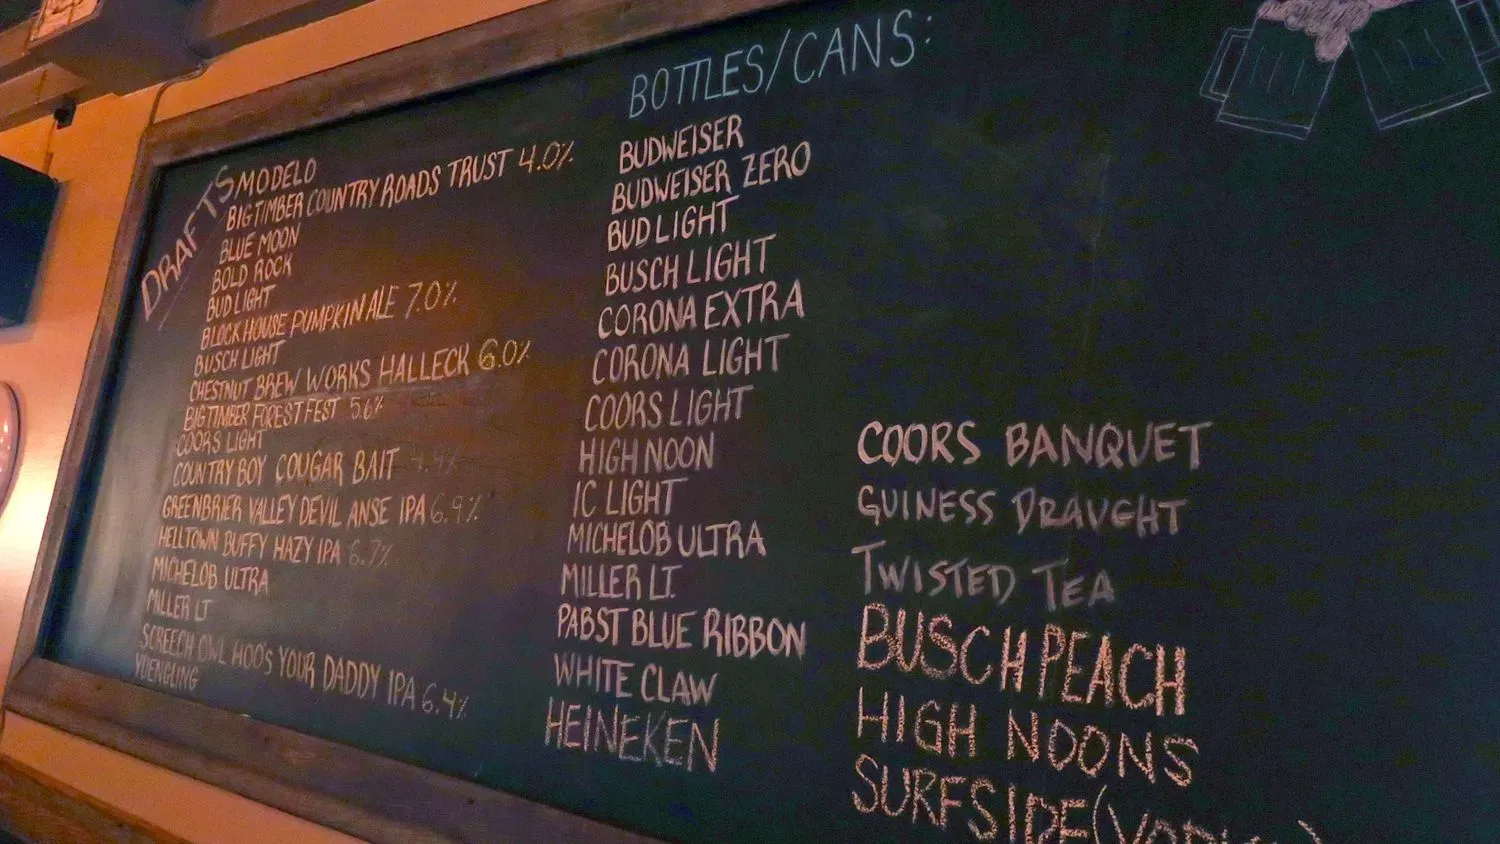 DRAFTS
MODELO
BIG TIMBER COUNTRY ROADS TRUST 4.0%
BLUE MOON
BOLD ROCK
BUD LIGHT
BLOCK HOUSE PUMPKIN ALE 7.0%
BUSCH LIGHT
CHESTNUT BREW WORKS HALLECK 6.0%
BIG TIMBER FOREST FEST 5.6%
COORS LIGHT
COUNTRY BOY COUGAR BAIT
GREENBRIER VALLEY DEVIL ANSE IPA 6.9%
HELLTOWN BUFFY HAZY IPA 6.7%
MICHELOB ULTRA
MILLER LT
SCREECH OWL HOO'S YOUR DADDY IPA 6.4%
YUENGLING
BOTTLES/CANS:
BUDWEISER
BUDWEISER ZERO
BUD LIGHT
BUSCH LIGHT
CORONA EXTRA
CORONA LIGHT
COORS LIGHT
HIGH NOON
IC LIGHT
MICHELOB ULTRA
MILLER LT.
PABST BLUE RIBBON
WHITE CLAW
HEINEKEN
COORS BANQUET
GUINESS DRAUGHT
TWISTED TEA
BUSCH PEACH
HIGH NOONS
SURFSIDE